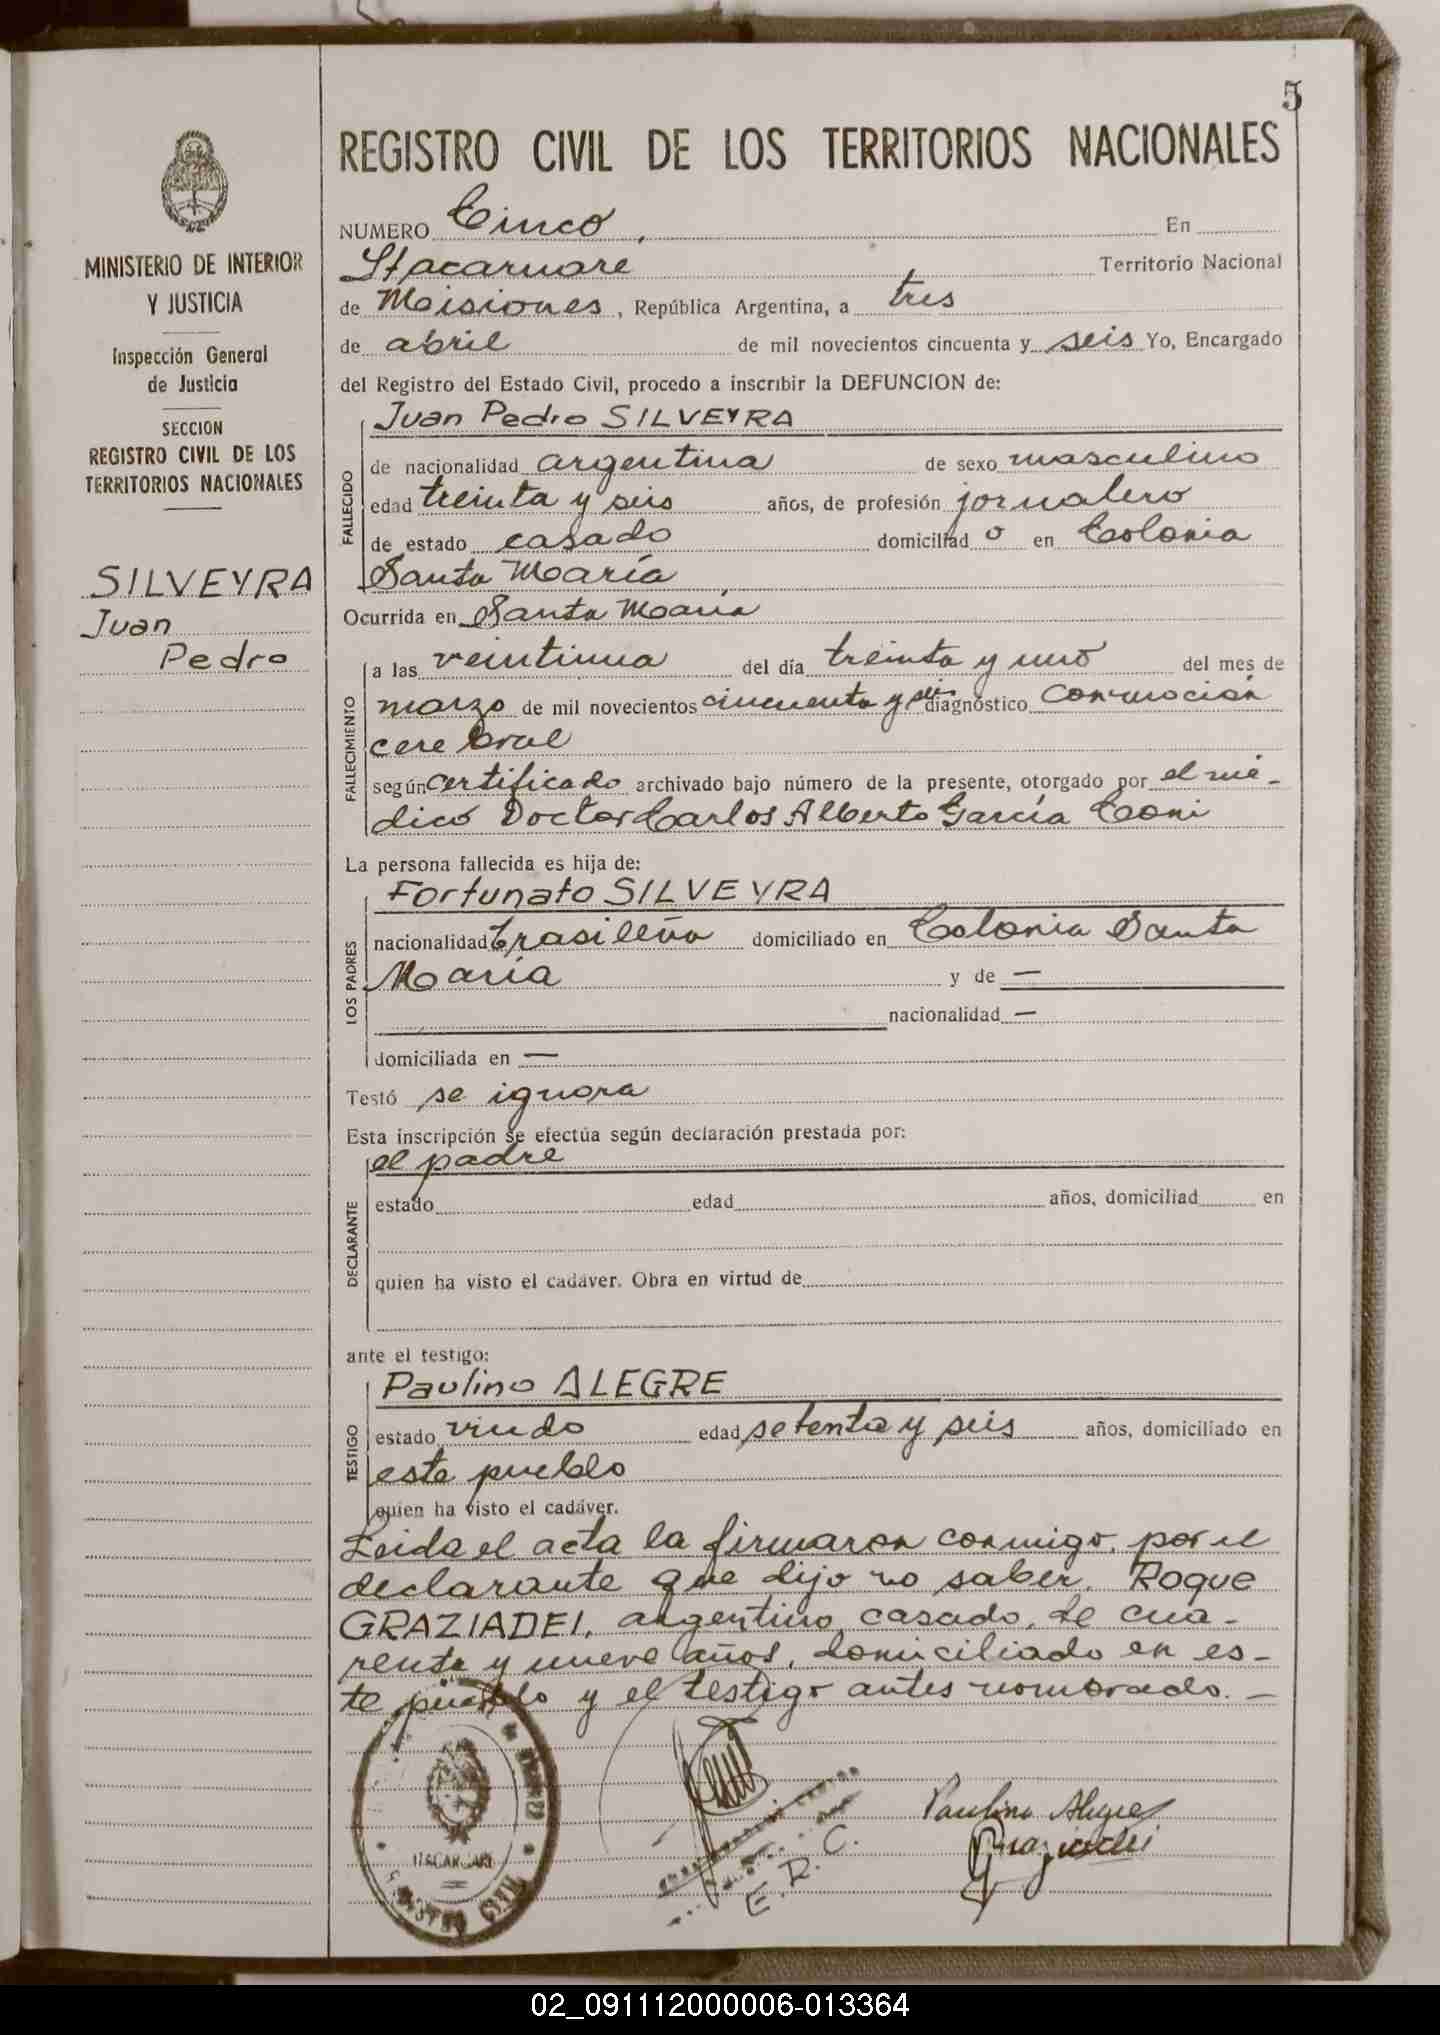 5
MINISTERIO DE INTERIOR
Y JUSTICIA
Inspección General
de Justicia
SECCION
REGISTRO CIVIL DE LOS
TERRITORIOS NACIONALES
SILVEYRA
Juan
Pedro
REGISTRO CIVIL DE LOS TERRITORIOS NACIONALES
NUMERO Cinco, En
Itacaruare Territorio Nacional
de Misiones, República Argentina, a tres
de abril de mil novecientos cincuenta y seis Yo, Encargado
del Registro del Estado Civil, procedo a inscribir la DEFUNCION de:
FALLECIDO
Juan Pedro SILVEYRA
de nacionalidad argentina de sexo masculino
edad treinta y seis años, de profesión jornalero
de estado casado domiciliad o en Colonia
Santa María
Ocurrida en Santa María
FALLECIMIENTO
a las veintiuna del día treinta y uno del mes de
marzo de mil novecientos cincuenta y seis diagnóstico conmoción
cerebral
según certificado archivado bajo número de la presente, otorgado por el mé-
dico Doctor Carlos Alberto García Coni
La persona fallecida es hija de:
LOS PADRES
Fortunato SILVEYRA
nacionalidad brasileña domiciliado en Colonia Santa
María y de —
nacionalidad —
domiciliada en —
Testó se ignora
Esta inscripción se efectúa según declaración prestada por:
DECLARANTE
el padre
estado edad años, domiciliad en
quien ha visto el cadáver. Obra en virtud de
ante el testigo:
TESTIGO
Paulino ALEGRE
estado viudo edad setenta y seis años, domiciliado en
este pueblo
quien ha visto el cadáver.
Leida el acta la firmaron conmigo, por el
declarante que dijo no saber, Roque
GRAZIADEI, argentino, casado, de cua-
renta y nueve años, domiciliado en es-
te pueblo y el testigo antes nombrado. —
ITACARUARE
REGISTRO CIVIL
E. R. C.
Paulino Alegre
Graziadei
02_091112000006-013364